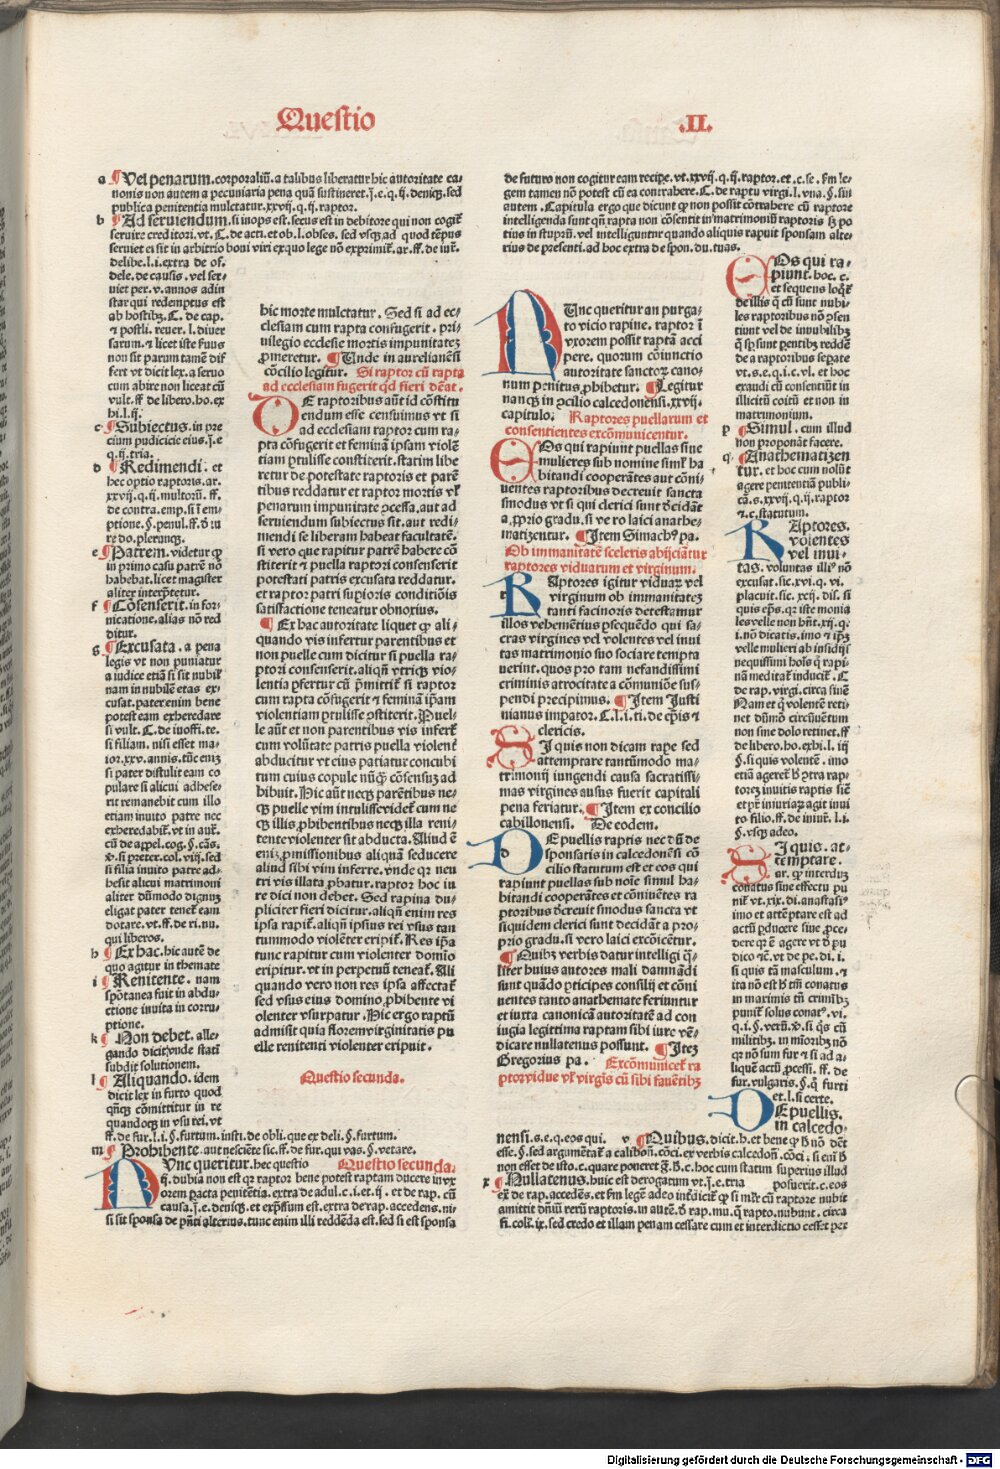 Questio
.II.
a ¶ Vel penarum. corporaliū. a talibus liberatur hic autoritate ca⸗
nonis non autem a pecuniaria pena quā sustineret. j. e. q. ij. deniqꝫ. sed
publica penitentia mulctatur. xxvij. q. ij. raptor.
b ¶ Ad seruiendum. si inops est. secus est in debitore qui non
seruire creditori. vt. C. de acti. et ob. l. obses. sed vsqꝫ ad quod tēpus
seruiet ei sit in arbitrio boni viri exquo lege nō
delibe. l. i. extra de of.
dele. de causis. vel ser⸗
uiet per. v. annos adin
star qui redemptus est
ab hostibꝫ. C. de cap.
⁊ postli. reuer. l. diuer
sarum. ⁊ licet iste suus
non sit parum tamē dif
fert vt dicit lex. a seruo
cum abire non liceat cū
vult. ff. de libero. ho. ex
hi. l. ij.
c ¶ Subiectus. in pre
cium pudicicie eius. j. e
q. ij. tria.
d ¶ Redimendi. et
hec optio raptoris. ar.
xxvij. q. ij. multorū. ff.
de contra. emp. si ī em⸗
ptione. §. penul. ff. đ iu
re do. plerunqꝫ.
e ¶ Patrem. videtur ꝙ
in primo casu patrē nō
habebat. licet magister
aliter interptetur.
f ¶ Cōsenserit. in for⸗
nicatione. alias nō red
ditur.
g ¶ Excusata. a pena
legis vt non puniatur
a iudice etiā si sit nubil⸗
nam in nubilē etas ex⸗
cusat. pater enim bene
potest eam exheredare
si vult. C. de inoffi. te.
si filiam. nisi esset ma⸗
ior. xxv. annis. tūc eniꝫ
si pater distulit eam co
pulare si alicui adhese⸗
rit remanebit cum illo
etiam inuito patre nec
cū de appel. cog. §. cās.
si filia inuito patre ad⸗
hesit alicui matrimoni
aliter dūmodo dignus
eligat pater tenet eam
dotare. vt. ff. de ri. nu.
qui liberos.
h ¶ Ex hac. hic autē de
quo agitur in themate
i ¶ Renitente. nam
spōtanea fuit in abdu⸗
ctione inuita in corru⸗
ptione.
k ¶ Non debet. alle⸗
gando dicit vnde stati
subdit solutionem.
l ¶ Aliquando. idem
dicit lex in furto quod
qñqꝫ cōmittitur in re
quandoqꝫ in vsu rei. vt
ff. de fur. l. i. §. furtum. insti. de obli. que ex deli. §. furtum.
m ¶ Prohibente. aut nesciēte sic. ff. de fur. qui vas. §. vetare.
NVnc queritur. hec questio Questio secunda.
ij. dubia non est qꝛ raptor bene potest raptam ducere in vx
orem pacta penitētia. extra de adul. c. i. et. ij. et de rap. cū
causa. j. e. deniqꝫ. et expressum est. extra de rap. accedens. ni⸗
si sit sponsa de pñti alterius. tunc enim illi reddēda est. sed si est sponsa
hic morte mulctatur. Sed si ad ec⸗
clesiam cum rapta confugerit. pri⸗
uilegio ecclesie mortis impunitateꝫ
promeretur. ¶ Vnde in aurelianēsi
cōcilio legitur. Si raptor cū rapta
ad ecclesiam fugerit qd fieri dēat.
DE raptoribus aūt id cōstitu
endum esse censuimus vt si
ad ecclesiam raptor cum ra⸗
pta cōfugerit ⁊ feminā ipsam violē
tiam ptulisse constiterit. statim libe
retur de potestate raptoris et raptor mortis vel
penarum impunitate ꝓcessa, aut ad
seruiendum subiectus sit. aut redi⸗
mendi se liberam habeat facultatē.
si vero que rapitur patrē habere cō
stiterit ⁊ puella raptori consenserit
potestati patris excusata reddatur.
et raptor patri supioris conditiōis
satisfactione teneatur obnoxius.
¶ Ex hac autoritate liquet ꝙ ali⸗
quando vis infertur parentibus et
non puelle cum dicitur si puella ra⸗
ptori consenserit. aliqñ vtriqꝫ vio⸗
lentia pfertur cū pmittit si raptor
cum rapta cōfugerit ⁊ feminā ipam
violentiam ptulisse ꝯstiterit. Puel⸗
le aūt et non parentibus vis infert
cum volūtate patris puella violent
abducitur vt eius patiatur concubi
tum cuius copule nūqꝫ cōsensuꝫ ad
hibuit. Hic aūt necqꝫ parētibus ne⸗
qꝫ puelle vim intulisse videt cum ne
qꝫ illis prohibentibus necqꝫ illa reni⸗
tente violenter sit abducta. Aliud ē
eniꝫ promissionibus aliquā seducere
aliud sibi vim inferre. vnde qꝛ neu
tri vis illata pbatur. raptor hoc iu
re dici non debet. Sed rapina du⸗
pliciter fieri dicitur. aliqñ enim res
ipsa rapit. aliqñ ipsius rei vsus tan
tummodo violēter eripit. Res ipsa
tunc rapitur cum violenter domio
eripitur. vt in perpetuū teneat. Ali
quando vero non res ipsa affectat
sed vsus eius domino prohibente vi
olenter vsurpatur. Hic ergo raptū
admisit quia florem virginitatis pu
elle renitenti violenter eripuit.
Questio secunda.
de futuro non cogitur eam recipe. vt. xxvij. q. ij. raptor. et. c. se. Sm le⸗
gem tamen nō potest cū ea contrahere. C. de raptu virgi. l. vna. §. sin
autem. Capitula ergo que dicunt ꝙ non possit cōtrahere cū raptore
intelligenda sunt qñ rapta non cōsentit in matrimoniū raptoris lꝫ po
tius in stuprū. vel intelliguntur quando aliquis rapuit sponsam alte⸗
rius de presenti. ad hoc extra de spon. du. tuas.
NVnc queritur an purga⸗
to vicio rapine. raptor ī
vxorem possit raptā acci
pere. quorum cōiunctio
autoritate sanctorꝫ cano⸗
num penitus phibetur. ¶ Legitur
nanqꝫ in ꝯcilio calcedonensi. xxvij.
capitulo. Raptores puellarum et
consentientes excōmunicentur.
EOs qui rapiunt puellas siue
mulieres sub nomine simul ha
bitandi cooperātes aut cōni⸗
uentes raptoribus decreuit sancta
sinodus vt si qui clerici sunt decidāt
a proprio gradu. si vero laici anathe⸗
matizentur. ¶ Item Simachꝫ pa.
Ob immanitatē sceleris abijciātur
raptores viduarum et virginum.
RAptores igitur viduaꝫ vel
virginum ob immanitateꝫ
tanti facinoris detestamur
illos vehemētius psequēdo qui sa⸗
cras virgines vel volentes vel inui
tas matrimonio suo sociare tempta
uerint. quos pro tam nefandissimi
criminis atrocitate a cōmuniōe sus⸗
pendi precipimus. ¶ Item Justi
nianus impator. C. l. i. ti. de epis ⁊
clericis.
SI quis non dicam rape sed
attemptare tantūmodo ma⸗
trimonij iungendi causa sacratissi⸗
mas virgines ausus fuerit capitali
pena feriatur. ¶ Item ex concilio
cabillonensi. De eodem.
DE puellis raptis nec dū de⸗
sponsatis in calcedonēsi cō
cilio statutum est et eos qui
rapiunt puellas sub noīe simul ha⸗
bitandi cooperātes et cōniuētes ra
ptoribus dcreuit sinodus sancta vt
siquidem clerici sunt decidāt a pro⸗
prio gradu. si vero laici excōicētur.
¶ Quibꝫ verbis datur intelligi q⸗
liter huius autores mali damnādi
sunt quādo pticipes consilij et cōni
uentes tanto anathemate feriuntur
et iuxta canonicā autoritatē ad con
iugia legittima raptam sibi iure vē⸗
dicare nullatenus possunt. ¶ Iteꝫ
Gregorius pa. Excōmunicet ra
ptor vidue vel virgīs cū sibi fauētibꝫ
EOs qui ra⸗
piunt. hoc. c.
et sequens loqt
de illis q cū sunt nubi⸗
les raptoribus nō psen
tiunt vel de innubilibꝫ
q sp sunt pentibꝫ reddē
de a raptoribus sepate
vt. s. e. q. i. c. vl. et hoc
exaudi cū consentiūt in
illicitū coitū et non in
matrimonium.
p ¶ Simul. cum illud
non proponāt facere.
q ¶ Anathematizen
tur. et hoc cum nolūt
agere penitentiā publi⸗
cā. s. xxvij. q. ij. raptor
⁊. c. statutum.
RAptores.
volentes
vel inui⸗
tas. voluntas illiꝰ nō
excusat. sic. xvi. q. vi.
placuit. sic. xcij. dis. si
quis eps. qꝛ iste monia
les velle non hñt. xij. q.
i. nō dicatis. imo ⁊ ipsꝫ
velle mulieri ab insidijs
nequissimi hois q rapi⸗
nā meditat inducit. C.
de rap. virgi. circa finē
Nam et q volentē reti⸗
net dūmō circūuētum
non sine dolo retinet. ff
de libero. ho. exhi. l. iij
§. si quis volentē. imo
etiā ageret h ꝯtra rap⸗
toreꝫ inuitis raptis siēt
et pt iniuriaꝫ agit inui
to filio. ff. de iniur. l. i.
§. vsqꝫ adeo.
SI quis. at⸗
temptare.
ar. ꝙ interdū
conatus sine effectu pu
nit vt. xix. di. anastasiꝰ
imo et attēptare est ad
actū pducere siue pce⸗
dere qꝛ ē agere vt đ pu
dico ꝛc. vt de pe. di. i.
si quis tā masculum. ⁊
ita nō est h tm conatus
in maximis tm crimībꝫ
punit solus conatꝰ. vi.
q. i. §. verū. đ. si qs cū
militibꝫ. in minoribꝫ nō
qꝛ nō sum fur ⁊ si ad a⸗
liquē actū pcessi. ff. de
fur. vulgaris. §. q furti
et. l. si certe.
DE puellis.
in calcedo⸗
nensi. s. e. q. eos qui. v ¶ Quibus. dicit. h. et bene ꝙ h nō dēt
x ¶ Nullatenus. huic est derogatum vt. j. e. tria posuerit. c. eos